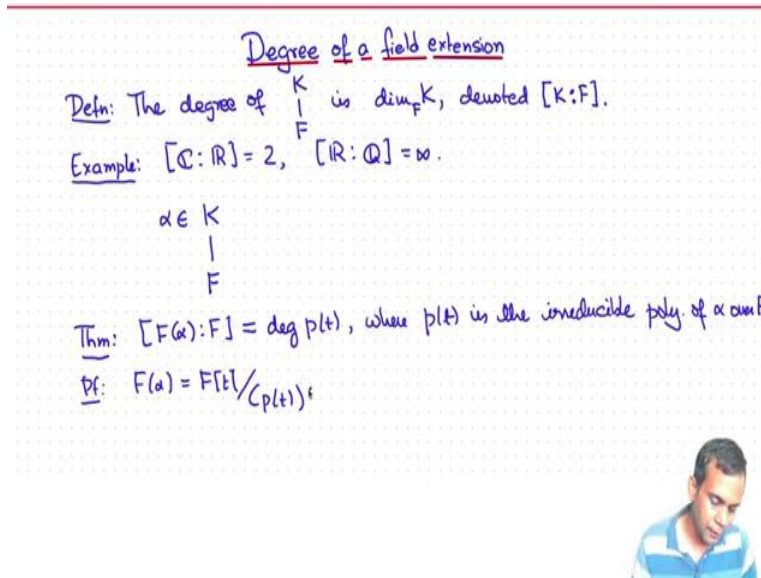 Degree of a field extension
Defn: The degree of K | F is dim_F K, denoted [K:F].
Example: [ℂ:ℝ] = 2, [ℝ:ℚ] = ∞.
α ∈ K
|
F
Thm: [F(α):F] = deg p(t), where p(t) is the irreducible poly. of α over F
Pf: F(α) = F[t]/(p(t))